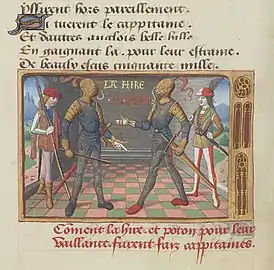 Yssirent hors pareillement.
Si tuerent le cappitaine.
Et d'autres anglois belle sulle
En gaignant la pour leur estraine.
De beaulx escus cinquante mille.
LA HIRE
Coment la hire et poton pour leur
Vaillance furent faiz cappitaines.